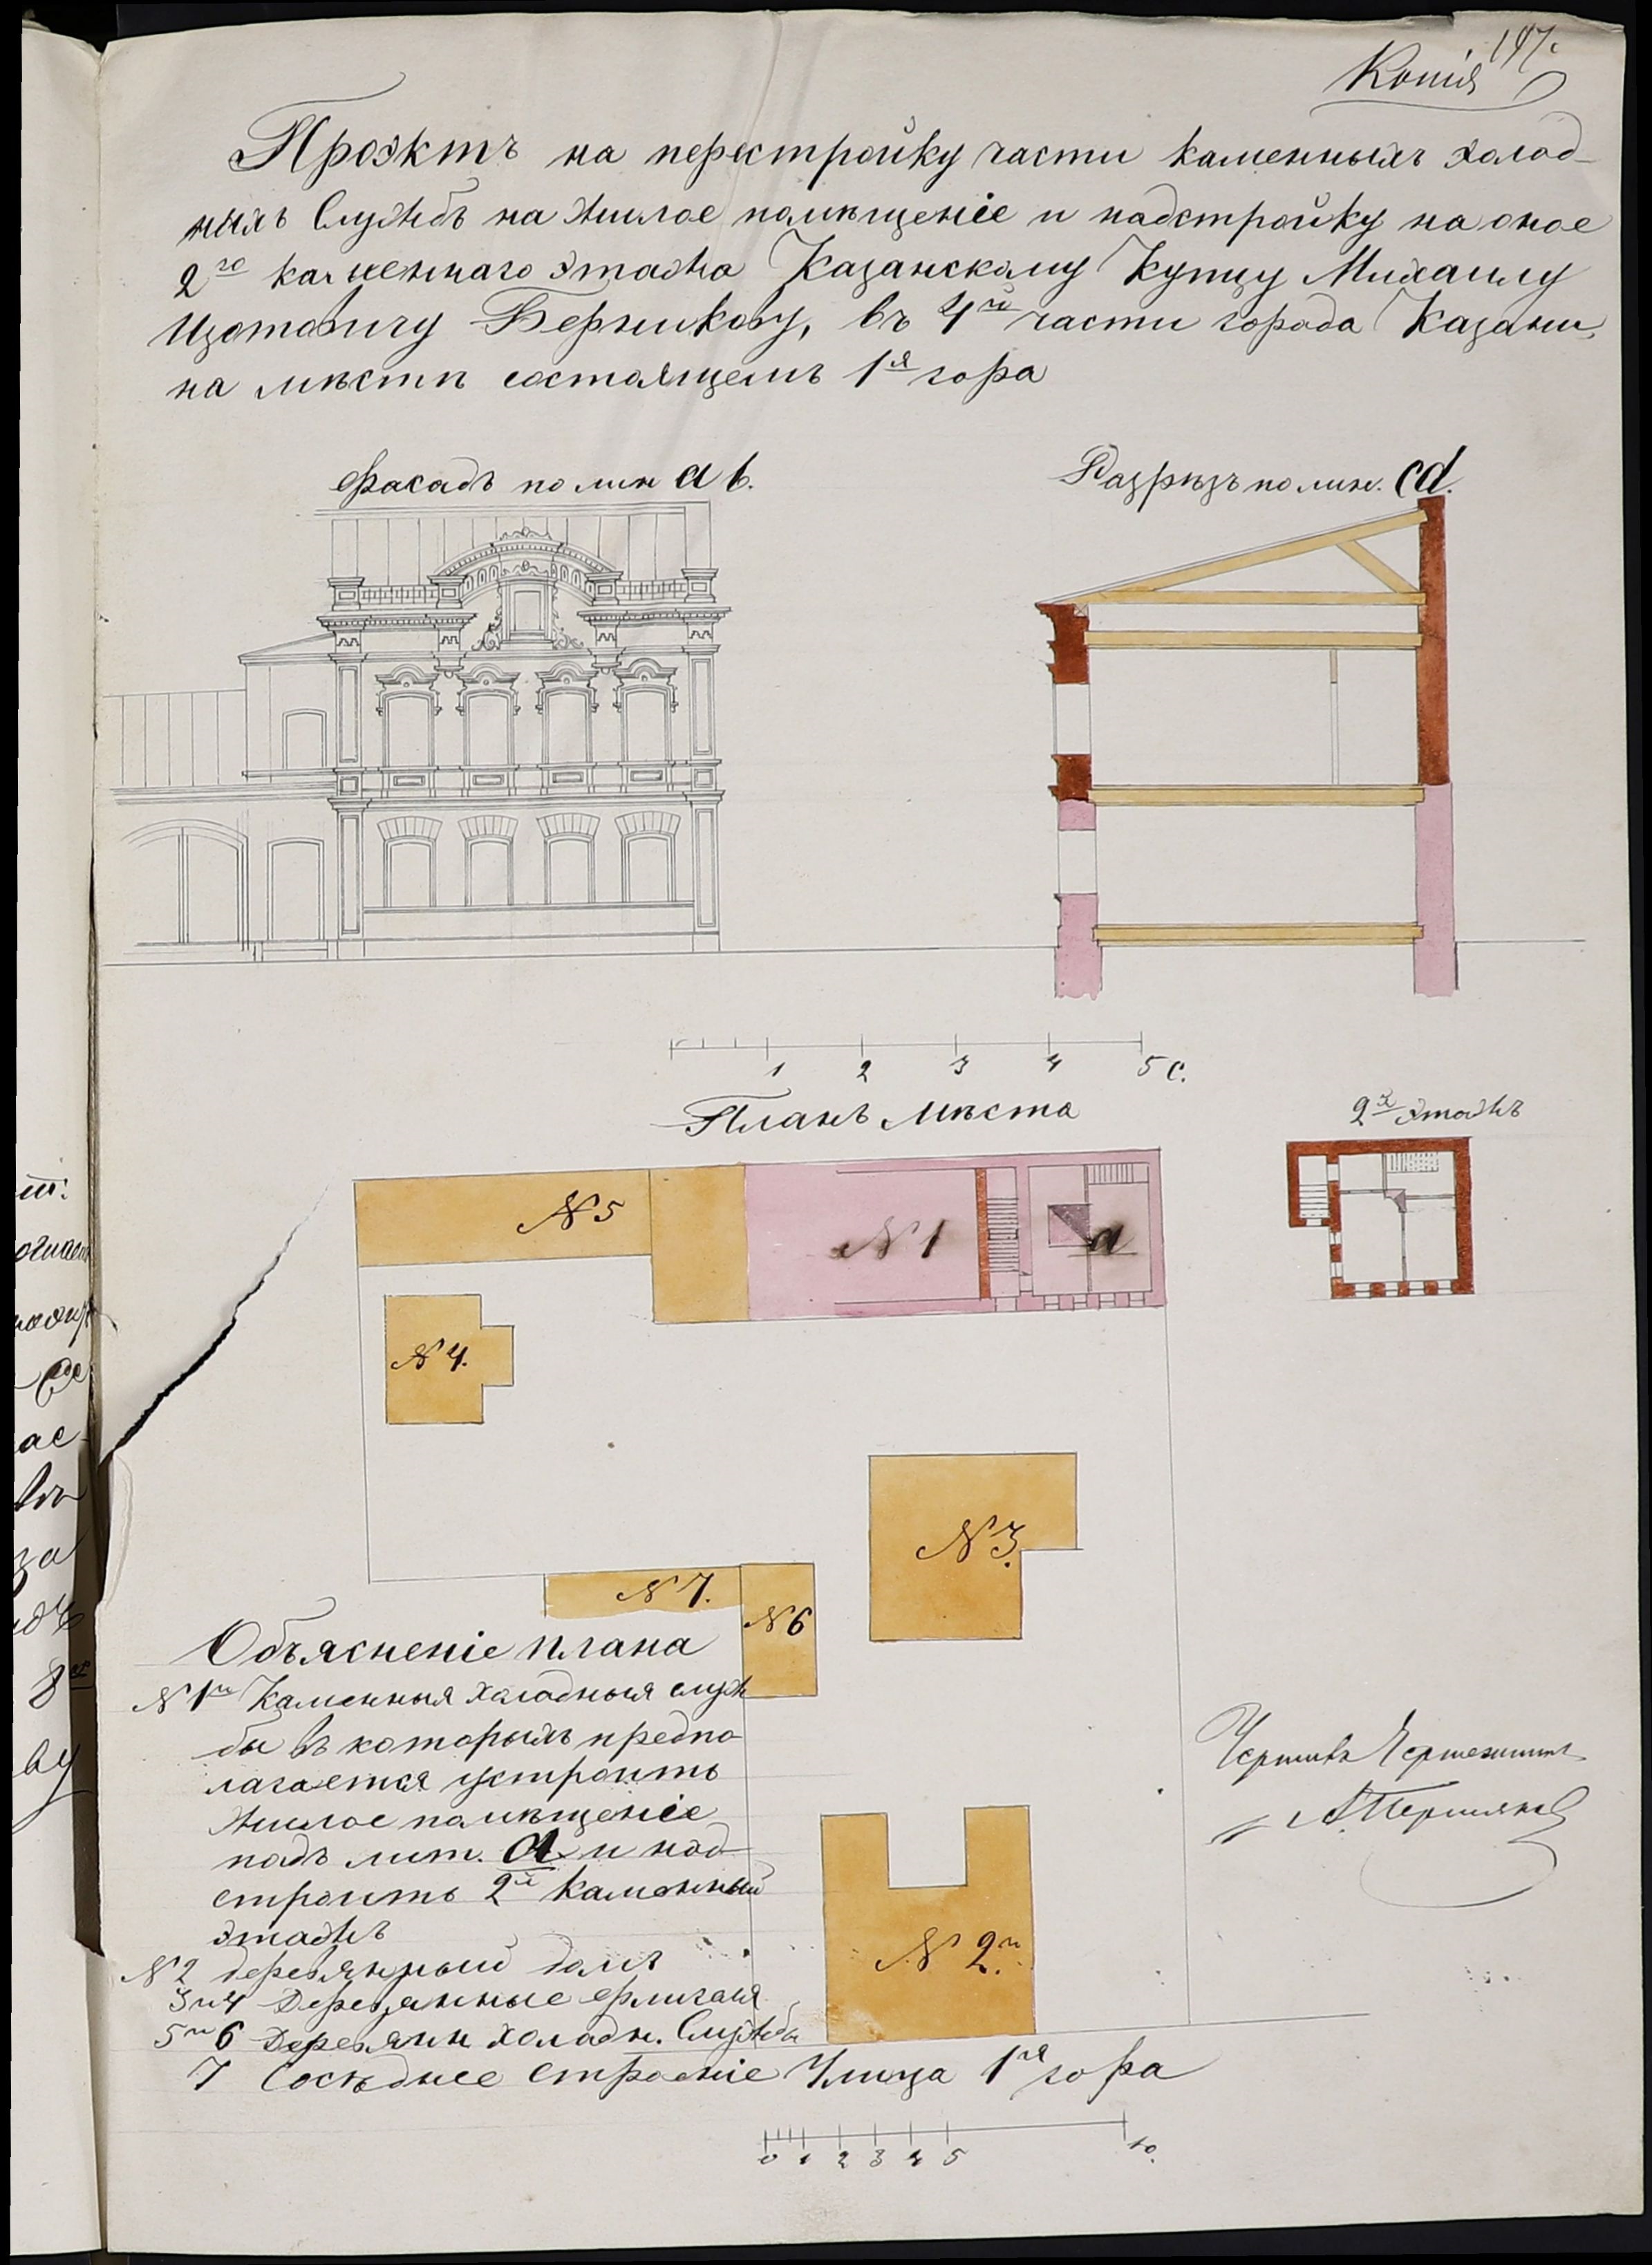 147.
Копія
Проэктъ на перестройку части каменныхъ холод-
ныхъ Службъ на жилое помѣщеніе и надстройку на оное
2го каменнаго этажа Казанскому Купцу Михаилу
Изотовичу Берникову, въ 4й части города Казани,
на мѣстѣ состоящемъ 1я гора
Фасадъ по лин a b.
Разрѣзъ по лин. cd.
1 2 3 4 5 с.
Планъ мѣста
2й этажъ
N 5
N 1
a
N 4.
N 3.
N 7.
N 6
Объясненіе плана
N 1й Каменныя холодныя служ
бы въ которыхъ предпо
лагается устроить
жилое помѣщеніе
подъ лит. a и над
строить 2й каменный
этажъ
N 2 деревянный домъ
3 и 4 Деревянные флигеля
5 и 6 Деревянн холодн. Службы
7 Сосѣднее строеніе
N 2й.
Улица 1я гора
Чертилъ Чертежникъ
А. Першляковъ
0 1 2 3 4 5 10.